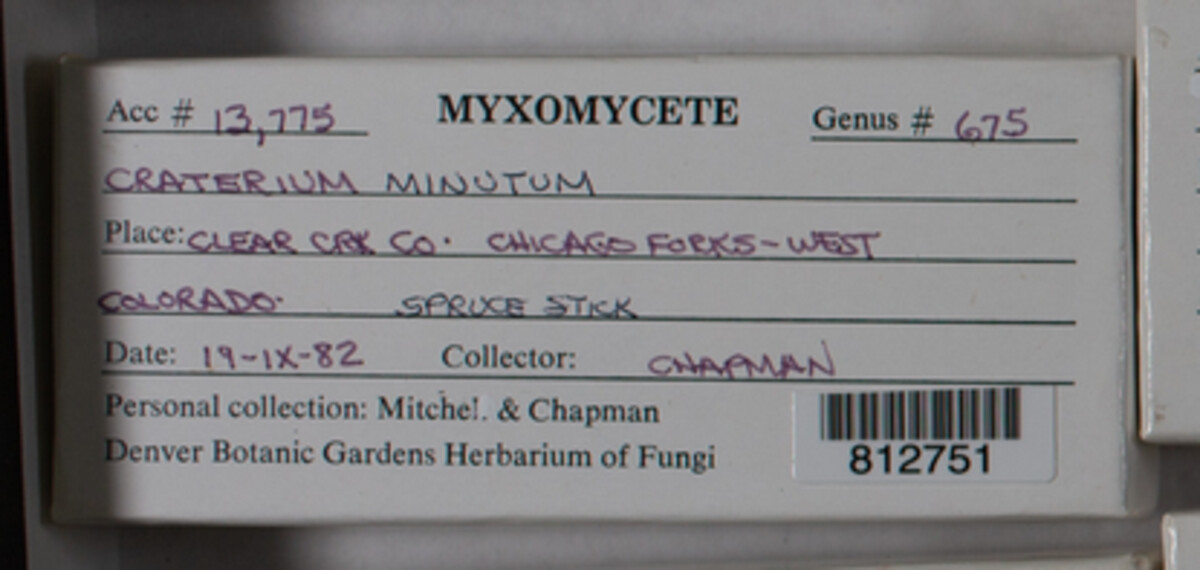 Acc # 13,775 MYXOMYCETE Genus # 675
CRATERIUM MINUTUM
Place: CLEAR CRK CO. CHICAGO FORKS-WEST
COLORADO. SPRUCE STICK
Date: 19-IX-82 Collector: CHAPMAN
Personal collection: Mitchel. & Chapman
Denver Botanic Gardens Herbarium of Fungi
812751